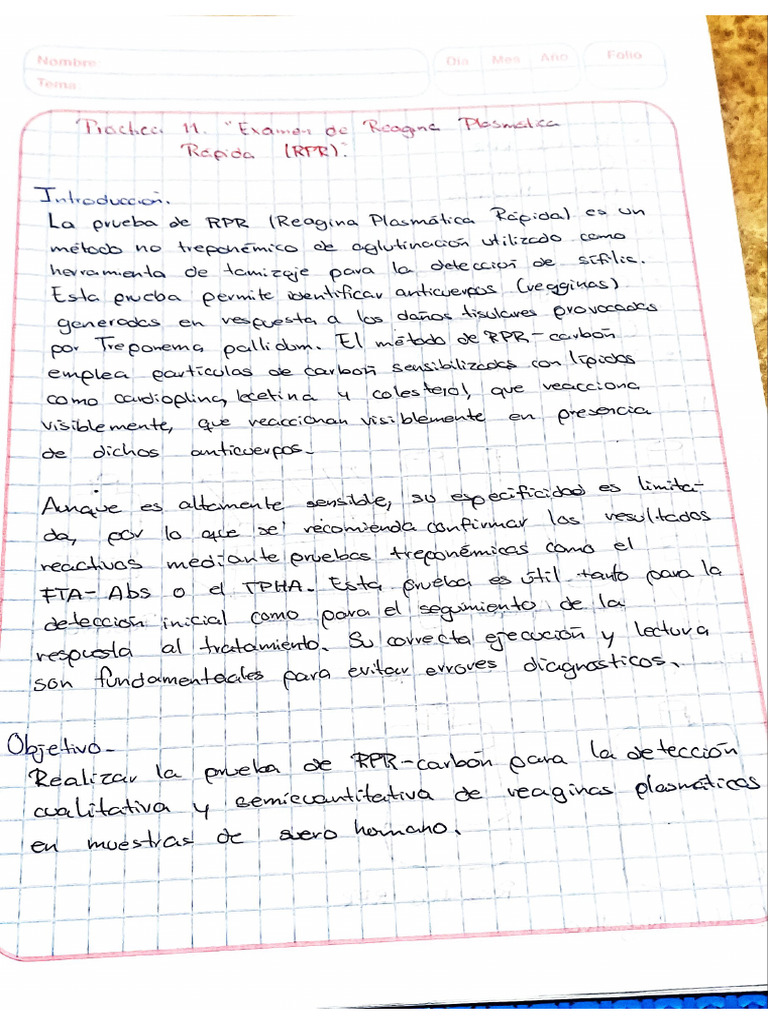 Nombre
Tema
Día Mes Año
Folio
Práctica 11. "Examen de Reagina Plasmática
Rápida (RPR)".
Introducción.
La prueba de RPR (Reagina Plasmática Rápida) es un
método no treponémico de aglutinación utilizado como
herramienta de tamizaje para la detección de sífilis.
Esta prueba permite identificar anticuerpos (reaginas)
generados en respuesta a los daños tisulares provocados
por Treponema pallidum. El método de RPR-carbón
emplea partículas de carbón sensibilizadas con lípidos
como cardioplina, lecetina y colesterol, que reacciona
visiblemente, que reaccionan visiblemente en presencia
de dichos anticuerpos.
Aunque es altamente sensible, su especificidad es limita-
da, por lo que se recomienda confirmar los resultados
reactivos mediante pruebas treponémicas como el
FTA-Abs o el TPHA. Esta prueba es útil tanto para la
detección inicial como para el seguimiento de la
respuesta al tratamiento. Su correcta ejecución y lectura
son fundamenteales para evitar errores diagnosticos.
Objetivo-
Realizar la prueba de RPR-carbón para la detección
cualitativa y semicuantitativa de reaginas plasmáticas
en muestras de suero hermano.